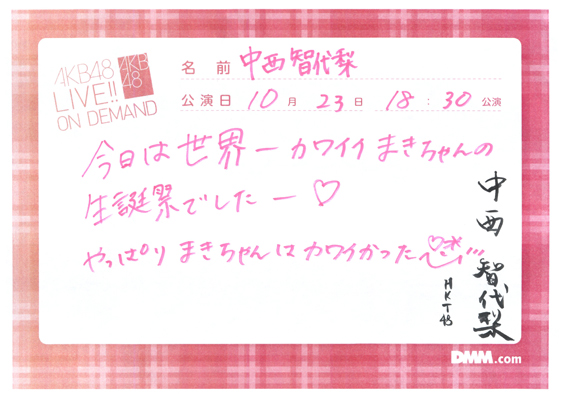 AKB48
LIVE!!
ON DEMAND
AKB
48
名 前 中西智代梨
公演日 10月 23日 18:30公演
今日は世界一カワイイまきちゃんの
生誕祭でしたー♡
やっぱりまきちゃんはカワイかった
中西 智代梨
HKT48
DMM.com